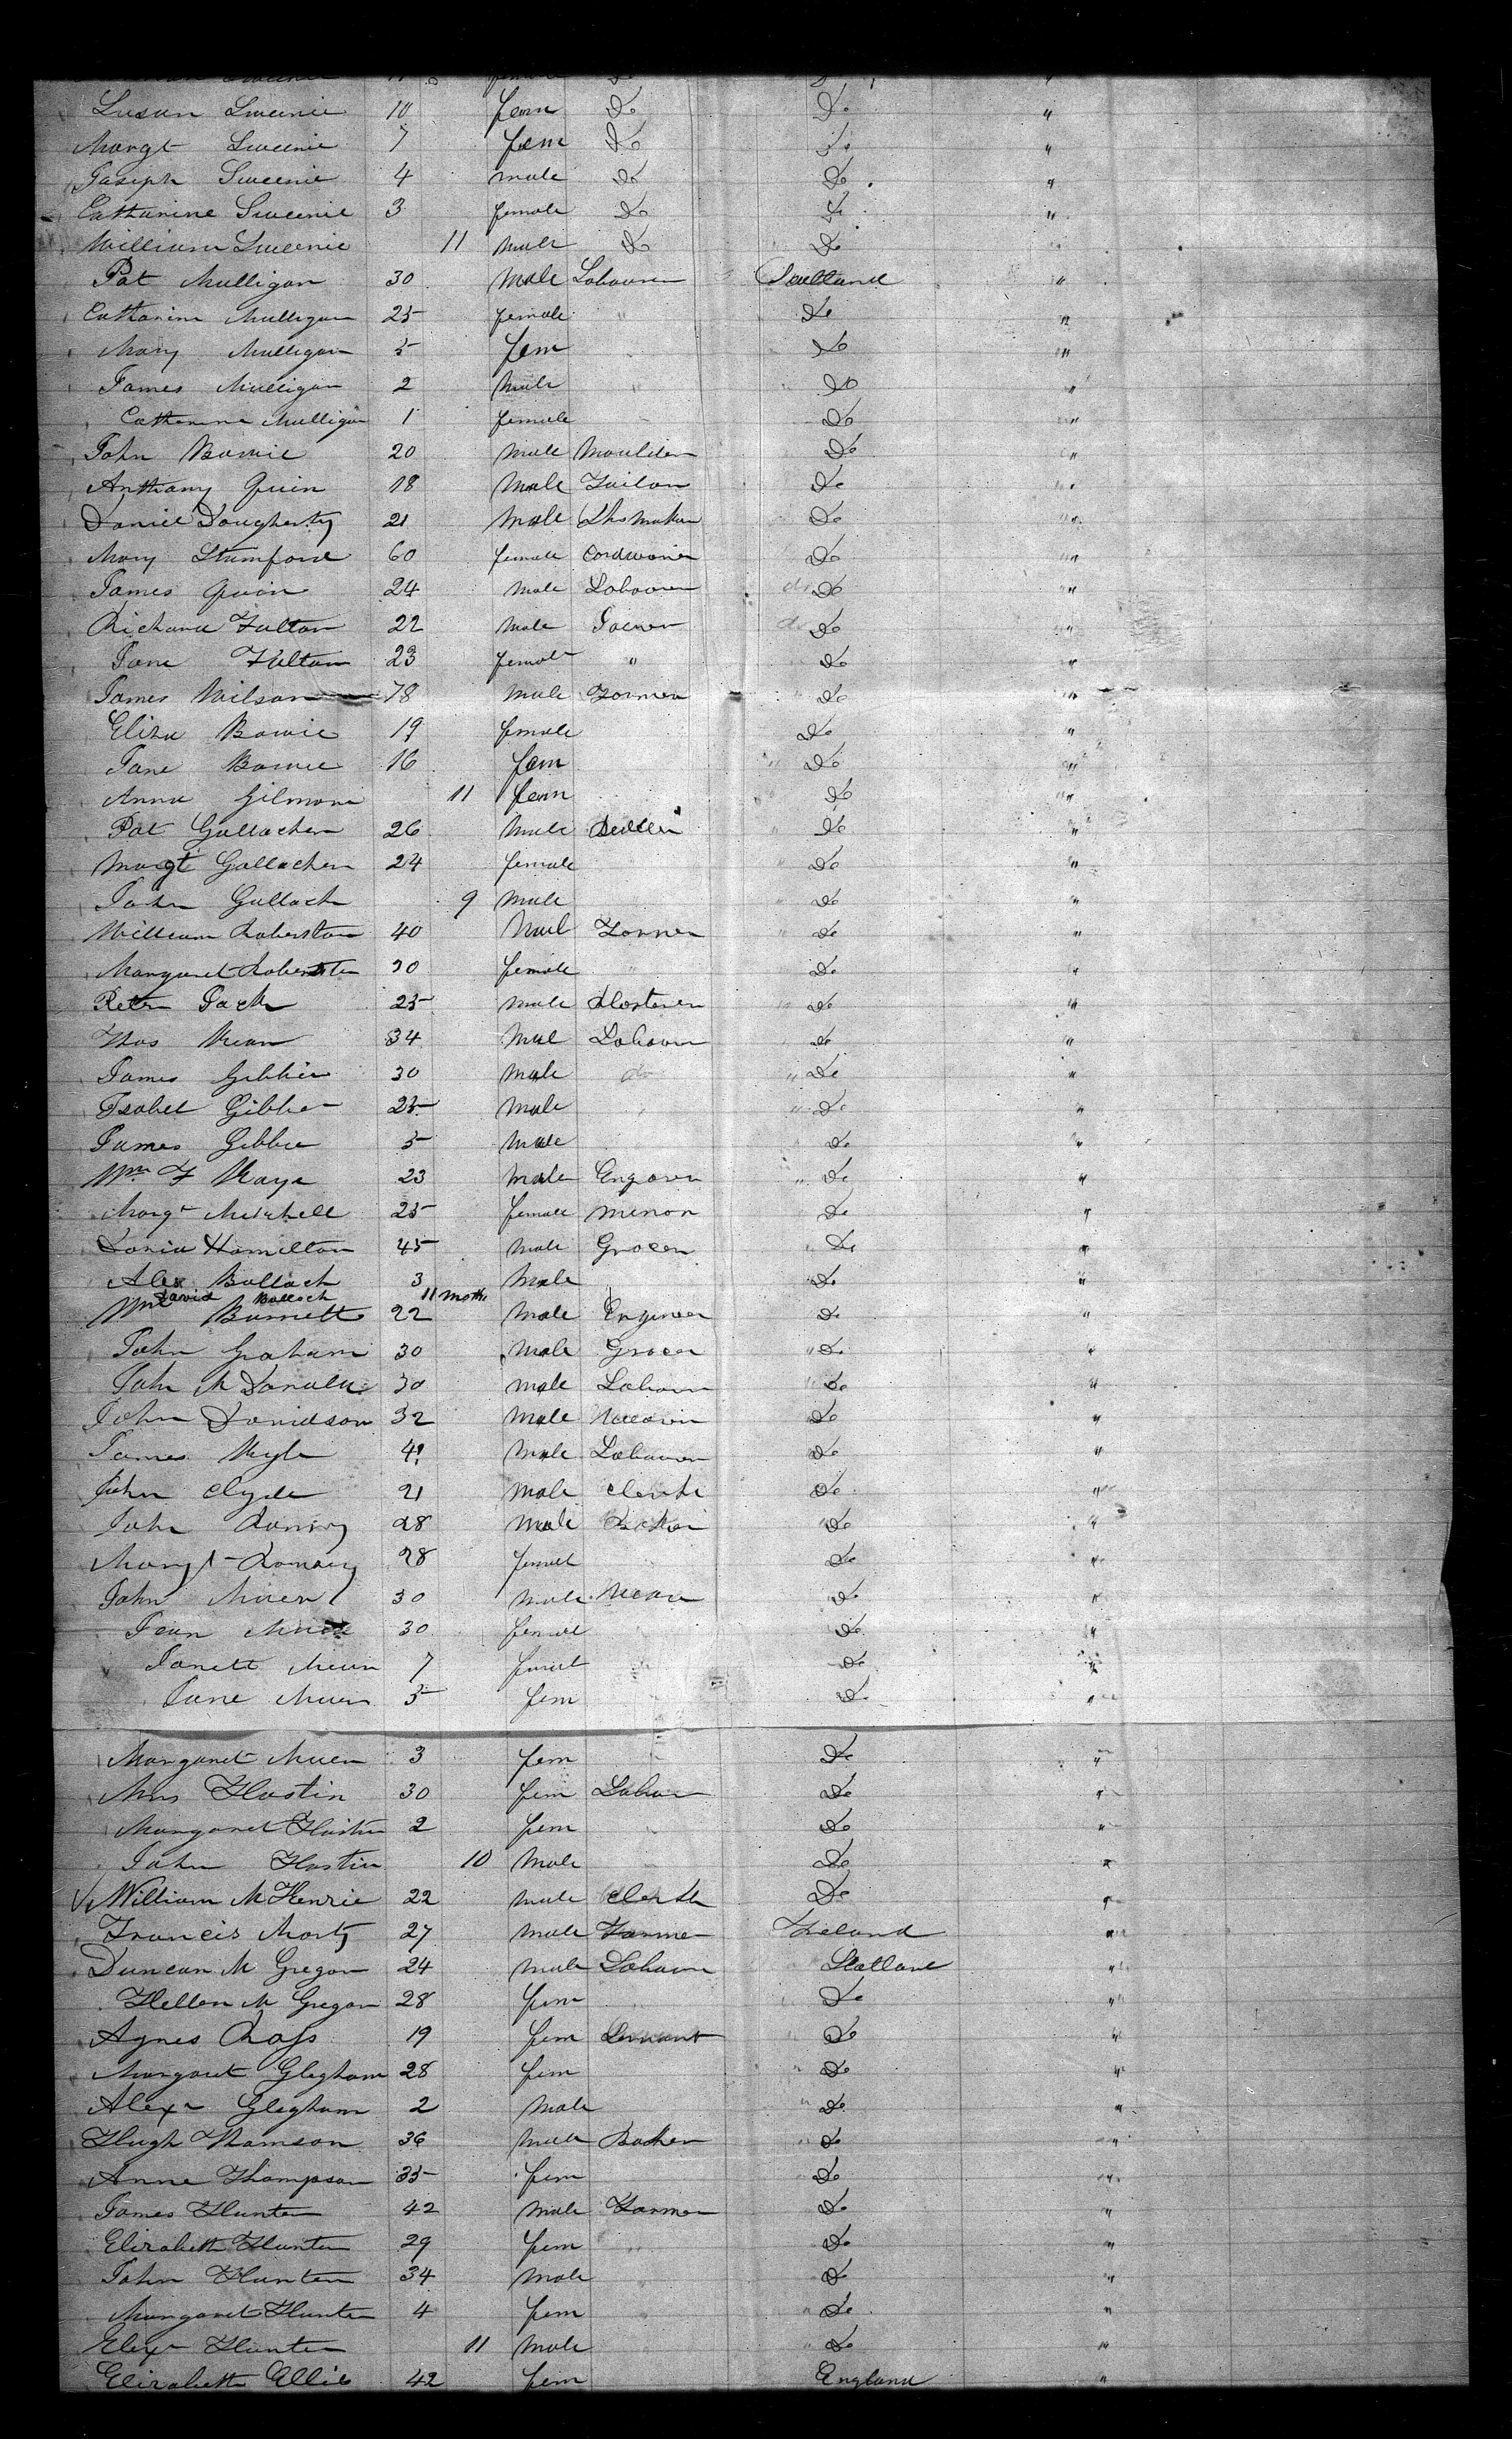 Susan Sweenie 10 fem Do Do "
Margt Sweenie 7 fem Do Do "
Joseph Sweenie 4 male Do Do "
Catharine Sweenie 3 female Do Do "
William Sweenie 11 male Do Do "
Pat Mulligan 30 male Labourer Scotland "
Catharine Mulligan 25 female " Do "
Mary Mulligan 5 fem Do "
James Mulligan 2 male " Do "
Catharine Mulligan 1 female Do "
John Bowie 20 male Moulder Do "
Anthony Quin 18 male Tailor Do "
Daniel Dougherty 21 male Sho Maker Do "
Mary Stumford 60 female Cordwaner Do "
James Quin 24 male Labourer do Do "
Richard Fulton 22 male Joiner do Do "
Jane Fulton 23 female " Do "
James Wilson 78 male Farmer " Do "
Eliza Bowie 19 female Do "
Jane Bowie 16 fem " Do "
Anna Gilmore 11 fem Do "
Pat Gallacher 26 male Do "
Margt Gallacher 24 female Do "
John Gallach 9 male Do "
William Roberston 40 male Farmer Do "
Margaret 30 female " Do "
Peter Jack 25 male Plasterer Do "
Thos Kean 34 mal Labourer Do "
James Gibbie 30 male do " Do "
Isabel Gibbie 25 male " Do "
James Gibbie 5 male Do "
Wm F Kaye 23 male Engraver " Do "
Margt Mitchell 25 female Minor Do "
David Hamilton 45 male Grocer " Do "
Alex Bulloch 3 male Do "
David Bulloch 11 moths
Wm Burnett 22 male Engineer Do "
John Graham 30 male Grocer " Do "
John McDonald 30 male Labourer " Do "
John Davidson 32 male Do "
James Kyle 41 male Labourer Do "
John Clyde 21 male Clerk Do "
John 28 male Baker Do "
Margt 28 female Do "
John Muer 30 male Do "
Jean Muer 30 female Do "
Janett Muer 7 female Do "
Jane Muer 5 fem Do "
Margaret Muer 3 fem Do "
Mrs Hastin 30 fem Labour Do "
Margaret Hastin 2 fem Do "
John Hastin 10 male Do "
William McHenrie 22 male Clerk Do "
Francis Marty 27 male Farmer Ireland "
Duncan McGregor 24 male Labourer Scotland "
Hellen McGregor 28 fem Do "
Agnes Ross 19 fem Servant Do "
Margaret Gleghorn 28 fem " Do "
Alexr Gleghorn 2 male " Do "
Hugh Thomson 36 male Baker " Do "
Anne Thompson 35 fem Do "
James Hunter 42 male Farmer Do "
Elizabeth Hunter 29 fem " Do "
John Hunter 34 male " Do "
Margaret Hunter 4 fem " Do "
Elexr Hunter 11 male " Do "
Elizabeth Ellis 42 fem England "